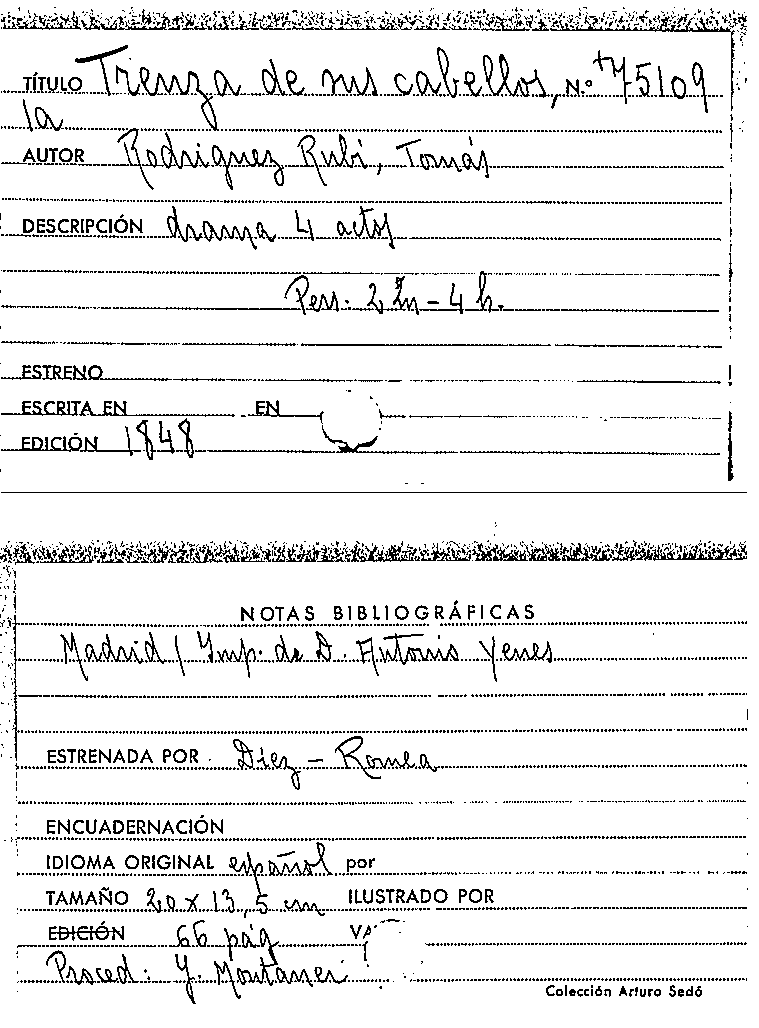 TÍTULO Trenza de sus cabellos, N.º +75109
la
AUTOR Rodriguez Rubi, Tomás
DESCRIPCIÓN drama 4 actos
Pers. 2 m - 4 h.
ESTRENO
ESCRITA EN EN
EDICIÓN 1848
NOTAS BIBLIOGRÁFICAS
Madrid / Ymp. de D. Antonio Yenes
ESTRENADA POR Díez - Romea
ENCUADERNACIÓN
IDIOMA ORIGINAL español por
TAMAÑO 20 x 13,5 cm ILUSTRADO POR
EDICIÓN 66 pág VA
Proced: Y. Montaner
Colección Arturo Sedó